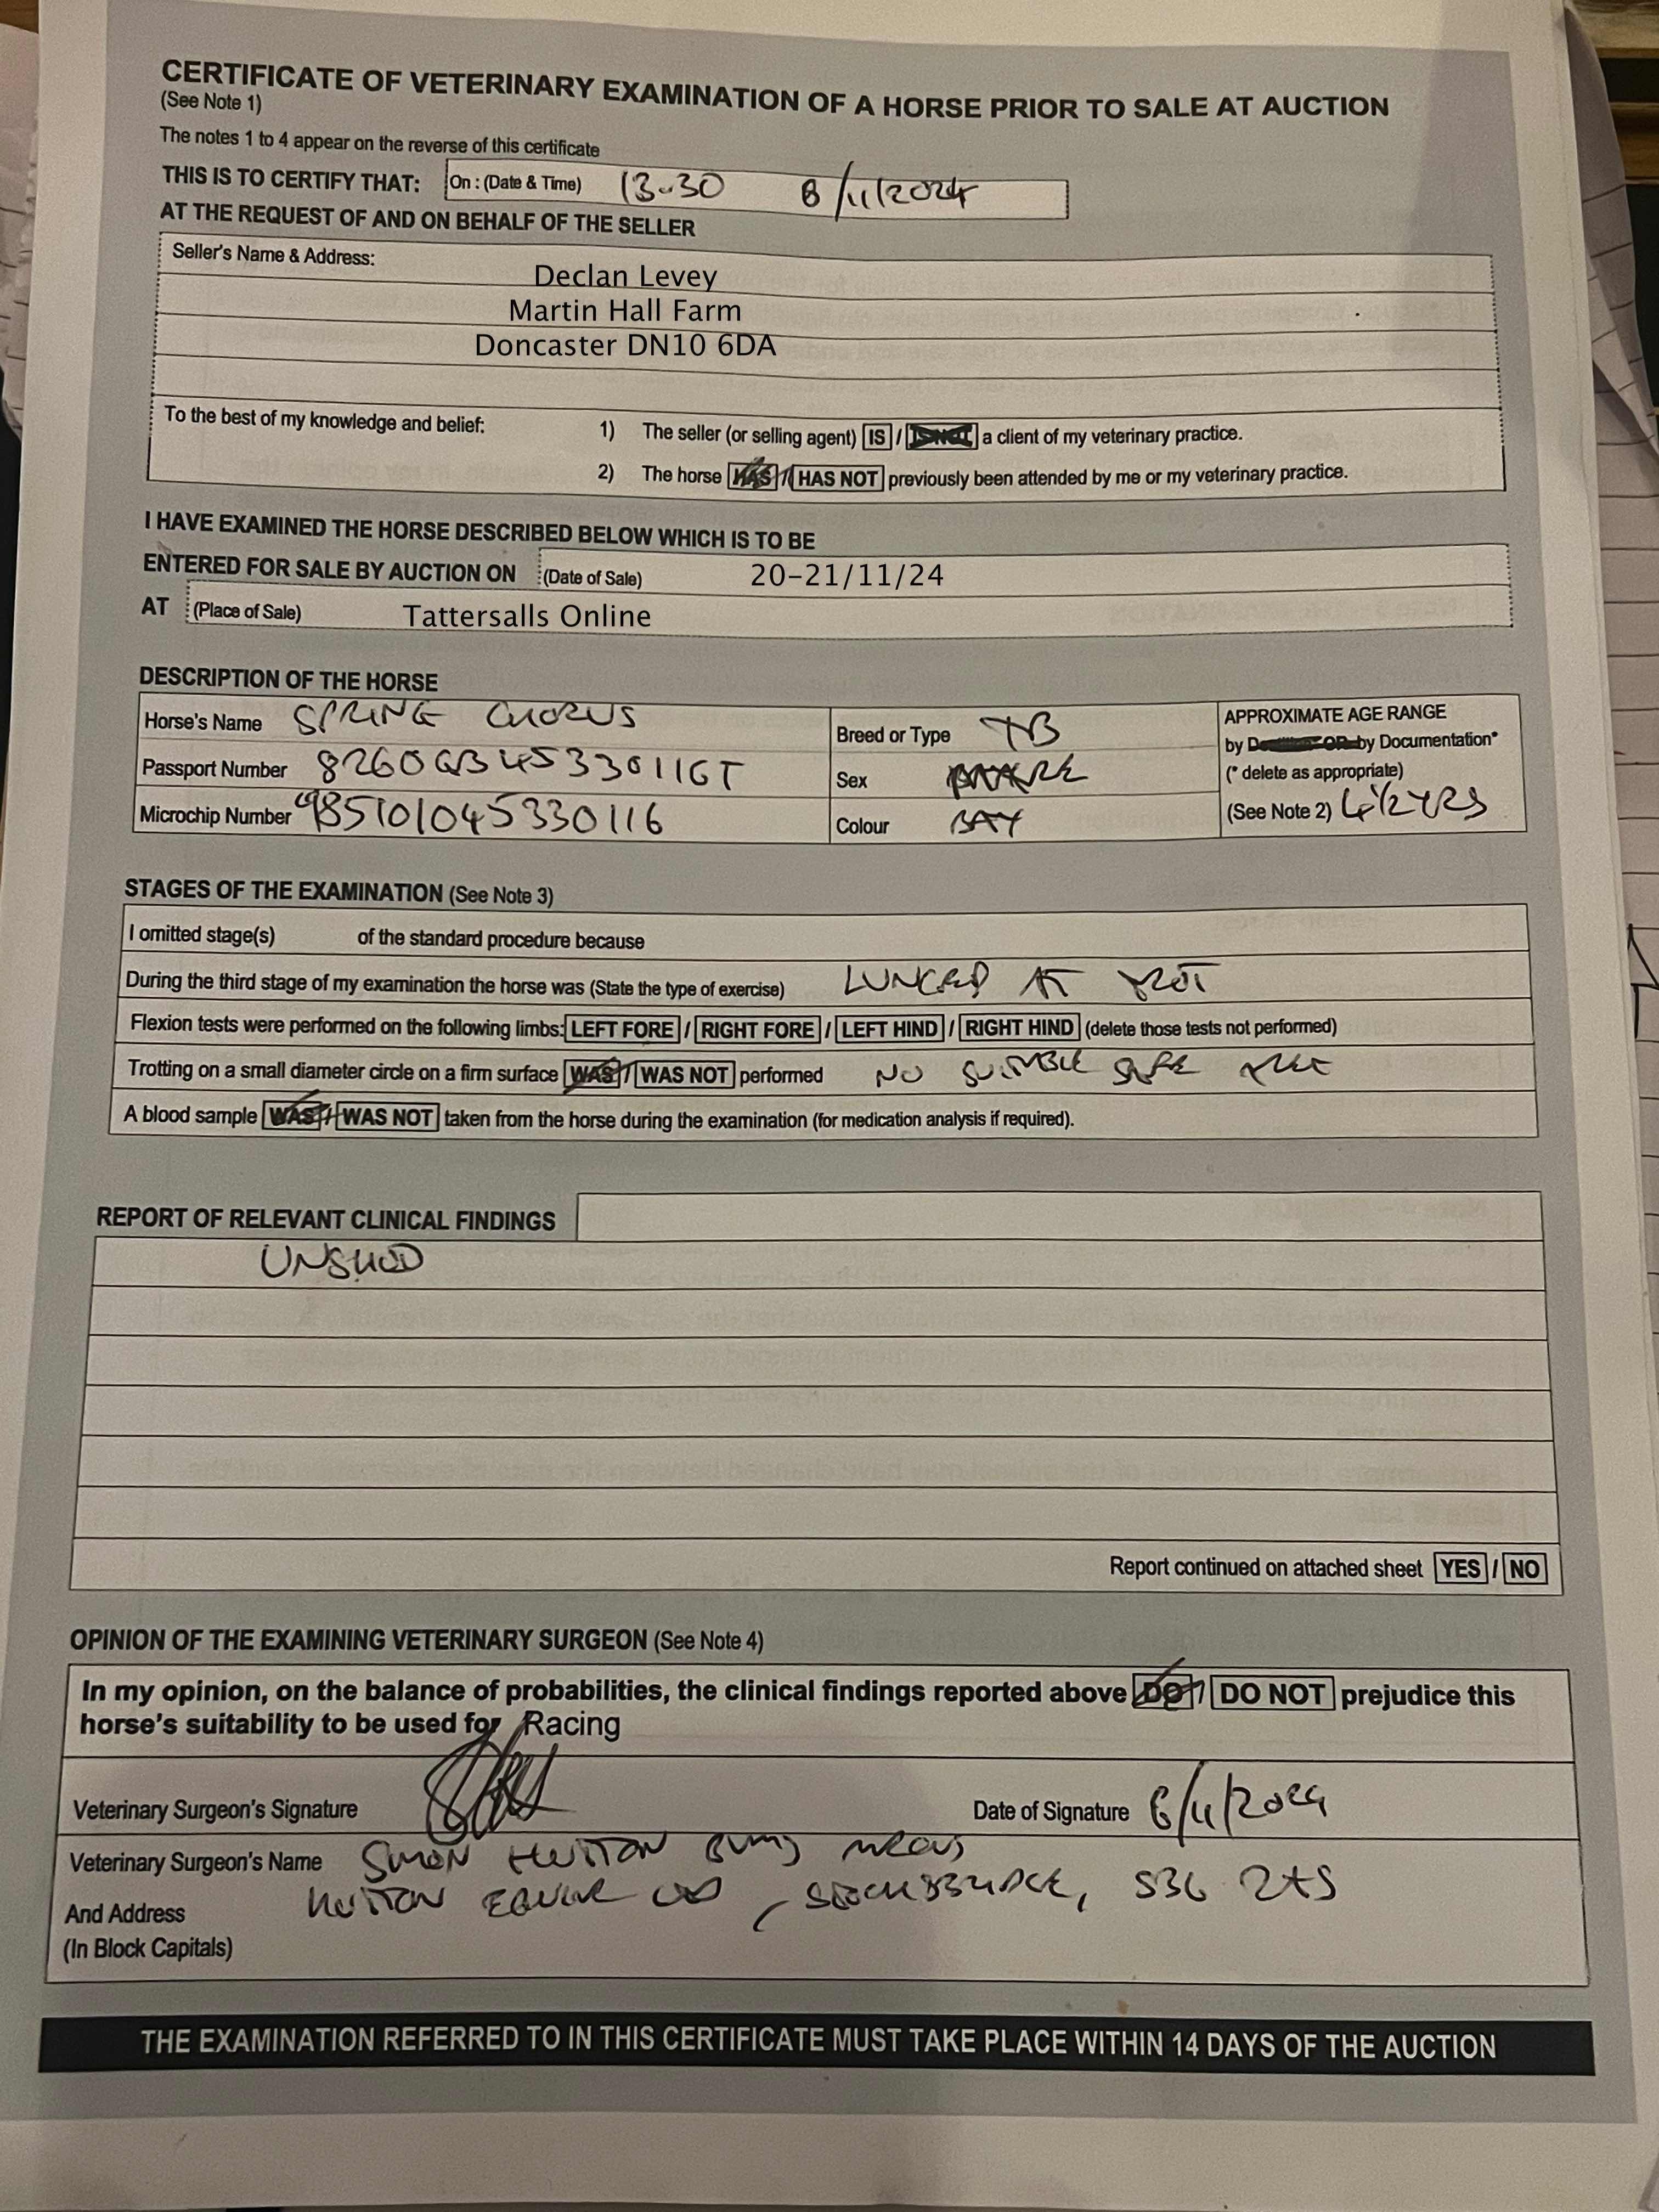 CERTIFICATE OF VETERINARY EXAMINATION OF A HORSE PRIOR TO SALE AT AUCTION
(See Note 1)
The notes 1 to 4 appear on the reverse of this certificate
THIS IS TO CERTIFY THAT: On : (Date & Time) 13-30 8/11/2024
AT THE REQUEST OF AND ON BEHALF OF THE SELLER
Seller's Name & Address:
Declan Levey
Martin Hall Farm
Doncaster DN10 6DA
To the best of my knowledge and belief: 1) The seller (or selling agent) IS / IS NOT a client of my veterinary practice.
2) The horse HAS / HAS NOT previously been attended by me or my veterinary practice.
I HAVE EXAMINED THE HORSE DESCRIBED BELOW WHICH IS TO BE
ENTERED FOR SALE BY AUCTION ON (Date of Sale) 20-21/11/24
AT (Place of Sale) Tattersalls Online
DESCRIPTION OF THE HORSE
Horse's Name SPRING CHORUS Breed or Type TB APPROXIMATE AGE RANGE
by Dentition OR by Documentation*
Passport Number 8260GB4533011GT Sex MARE (* delete as appropriate)
Microchip Number 985101045330116 Colour BAY (See Note 2) 4½YRS
STAGES OF THE EXAMINATION (See Note 3)
I omitted stage(s) of the standard procedure because
During the third stage of my examination the horse was (State the type of exercise) LUNGED AT TROT
Flexion tests were performed on the following limbs: LEFT FORE / RIGHT FORE / LEFT HIND / RIGHT HIND (delete those tests not performed)
Trotting on a small diameter circle on a firm surface WAS / WAS NOT performed NO SUITABLE SAFE
A blood sample WAS / WAS NOT taken from the horse during the examination (for medication analysis if required).
REPORT OF RELEVANT CLINICAL FINDINGS
UNSHOD
Report continued on attached sheet YES / NO
OPINION OF THE EXAMINING VETERINARY SURGEON (See Note 4)
In my opinion, on the balance of probabilities, the clinical findings reported above DO / DO NOT prejudice this
horse's suitability to be used for Racing
Veterinary Surgeon's Signature Date of Signature 8/11/2024
Veterinary Surgeon's Name SIMON HUTTON BVMS MRCVS
And Address HUTTON EQUINE LTD, STOCKSBRIDGE, S36 2TS
(In Block Capitals)
THE EXAMINATION REFERRED TO IN THIS CERTIFICATE MUST TAKE PLACE WITHIN 14 DAYS OF THE AUCTION